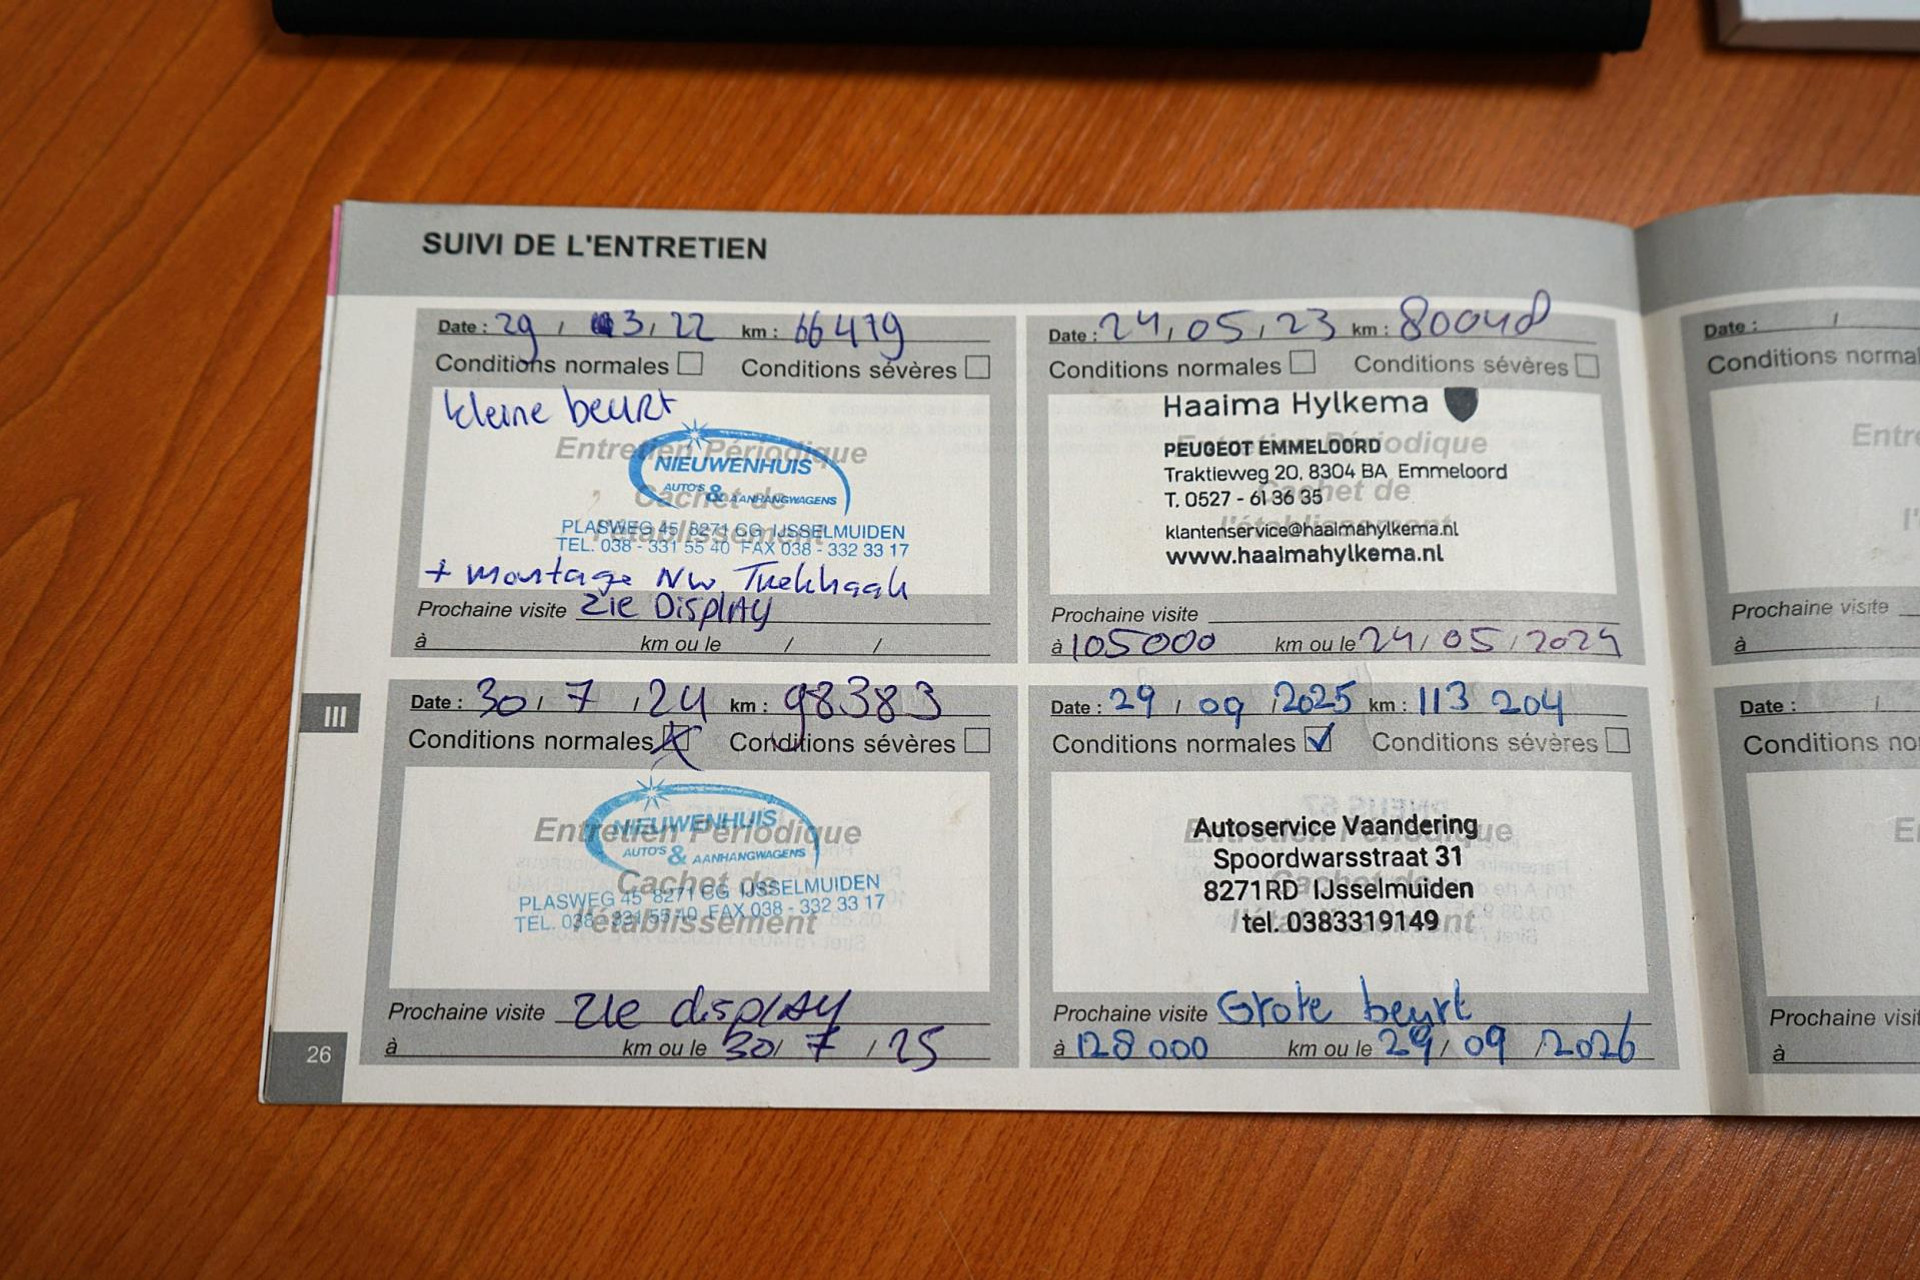 SUIVI DE L'ENTRETIEN
Date : 29 / 3 / 22 km : 66479
Conditions normales Conditions sévères
kleine beurt
Entretien Périodique
NIEUWENHUIS
AUTO'S & AANHANGWAGENS
Cachet de
PLASWEG 45 8271 CG IJSSELMUIDEN
l'établissement
TEL. 038 - 331 55 40 FAX 038 - 332 33 17
+ montage NW Trekhaak
Prochaine visite Zie Display
à km ou le / /
Date : 24 / 05 / 23 km : 80048
Conditions normales Conditions sévères
Haaima Hylkema
PEUGEOT EMMELOORD
Entretien Périodique
Traktieweg 20, 8304 BA Emmeloord
Cachet de
T. 0527 - 61 36 35
l'établissement
klantenservice@haaimahylkema.nl
www.haaimahylkema.nl
Prochaine visite
à 105000 km ou le 24 / 05 / 2024
III
Date : 30 / 7 / 24 km : 98383
Conditions normales Conditions sévères
NIEUWENHUIS
Entretien Périodique
AUTO'S & AANHANGWAGENS
Cachet de
PLASWEG 45 8271 CG IJSSELMUIDEN
TEL. 038 - 331 55 40 FAX 038 - 332 33 17
l'établissement
Prochaine visite Zie display
à km ou le 30 / 7 / 25
Date : 29 / 09 / 2025 km : 113 204
Conditions normales Conditions sévères
Autoservice Vaandering
Entretien Périodique
Spoordwarsstraat 31
Cachet de
8271RD IJsselmuiden
l'établissement
tel. 0383319149
Prochaine visite Grote beurt
à 128 000 km ou le 29 / 09 / 2026
26
Date : /
Conditions normal
Entre
l'
Prochaine visite
à
Date : /
Conditions no
E
Prochaine visit
à